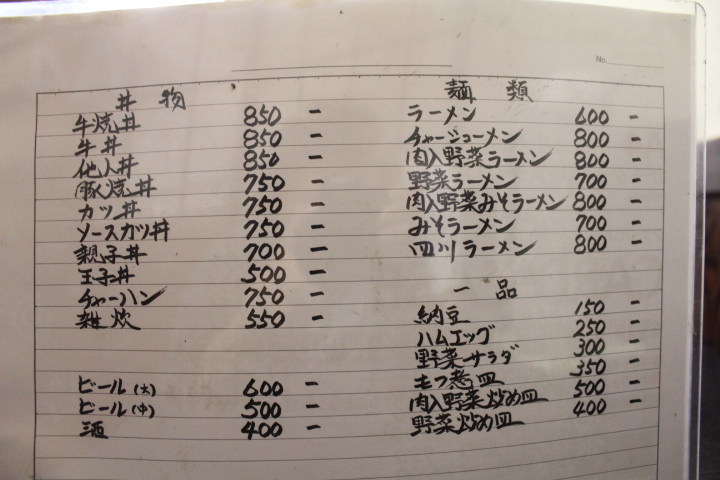 No.
丼 物
牛焼丼 850 -
牛丼 850 -
他人丼 850 -
豚焼丼 750 -
カツ丼 750 -
ソースカツ丼 750 -
親子丼 700 -
玉子丼 500 -
チャーハン 750 -
雑炊 550 -
ビール(大) 600 -
ビール(中) 500 -
酒 400 -
麺 類
ラーメン 600 -
チャージューメン 800 -
肉入野菜ラーメン 800 -
野菜ラーメン 700 -
肉入野菜みそラーメン 800 -
みそラーメン 700 -
四川ラーメン 800 -
一 品
納豆 150 -
ハムエッグ 250 -
野菜サラダ 300 -
350 -
肉入野菜炒め皿 500 -
野菜炒め皿 400 -